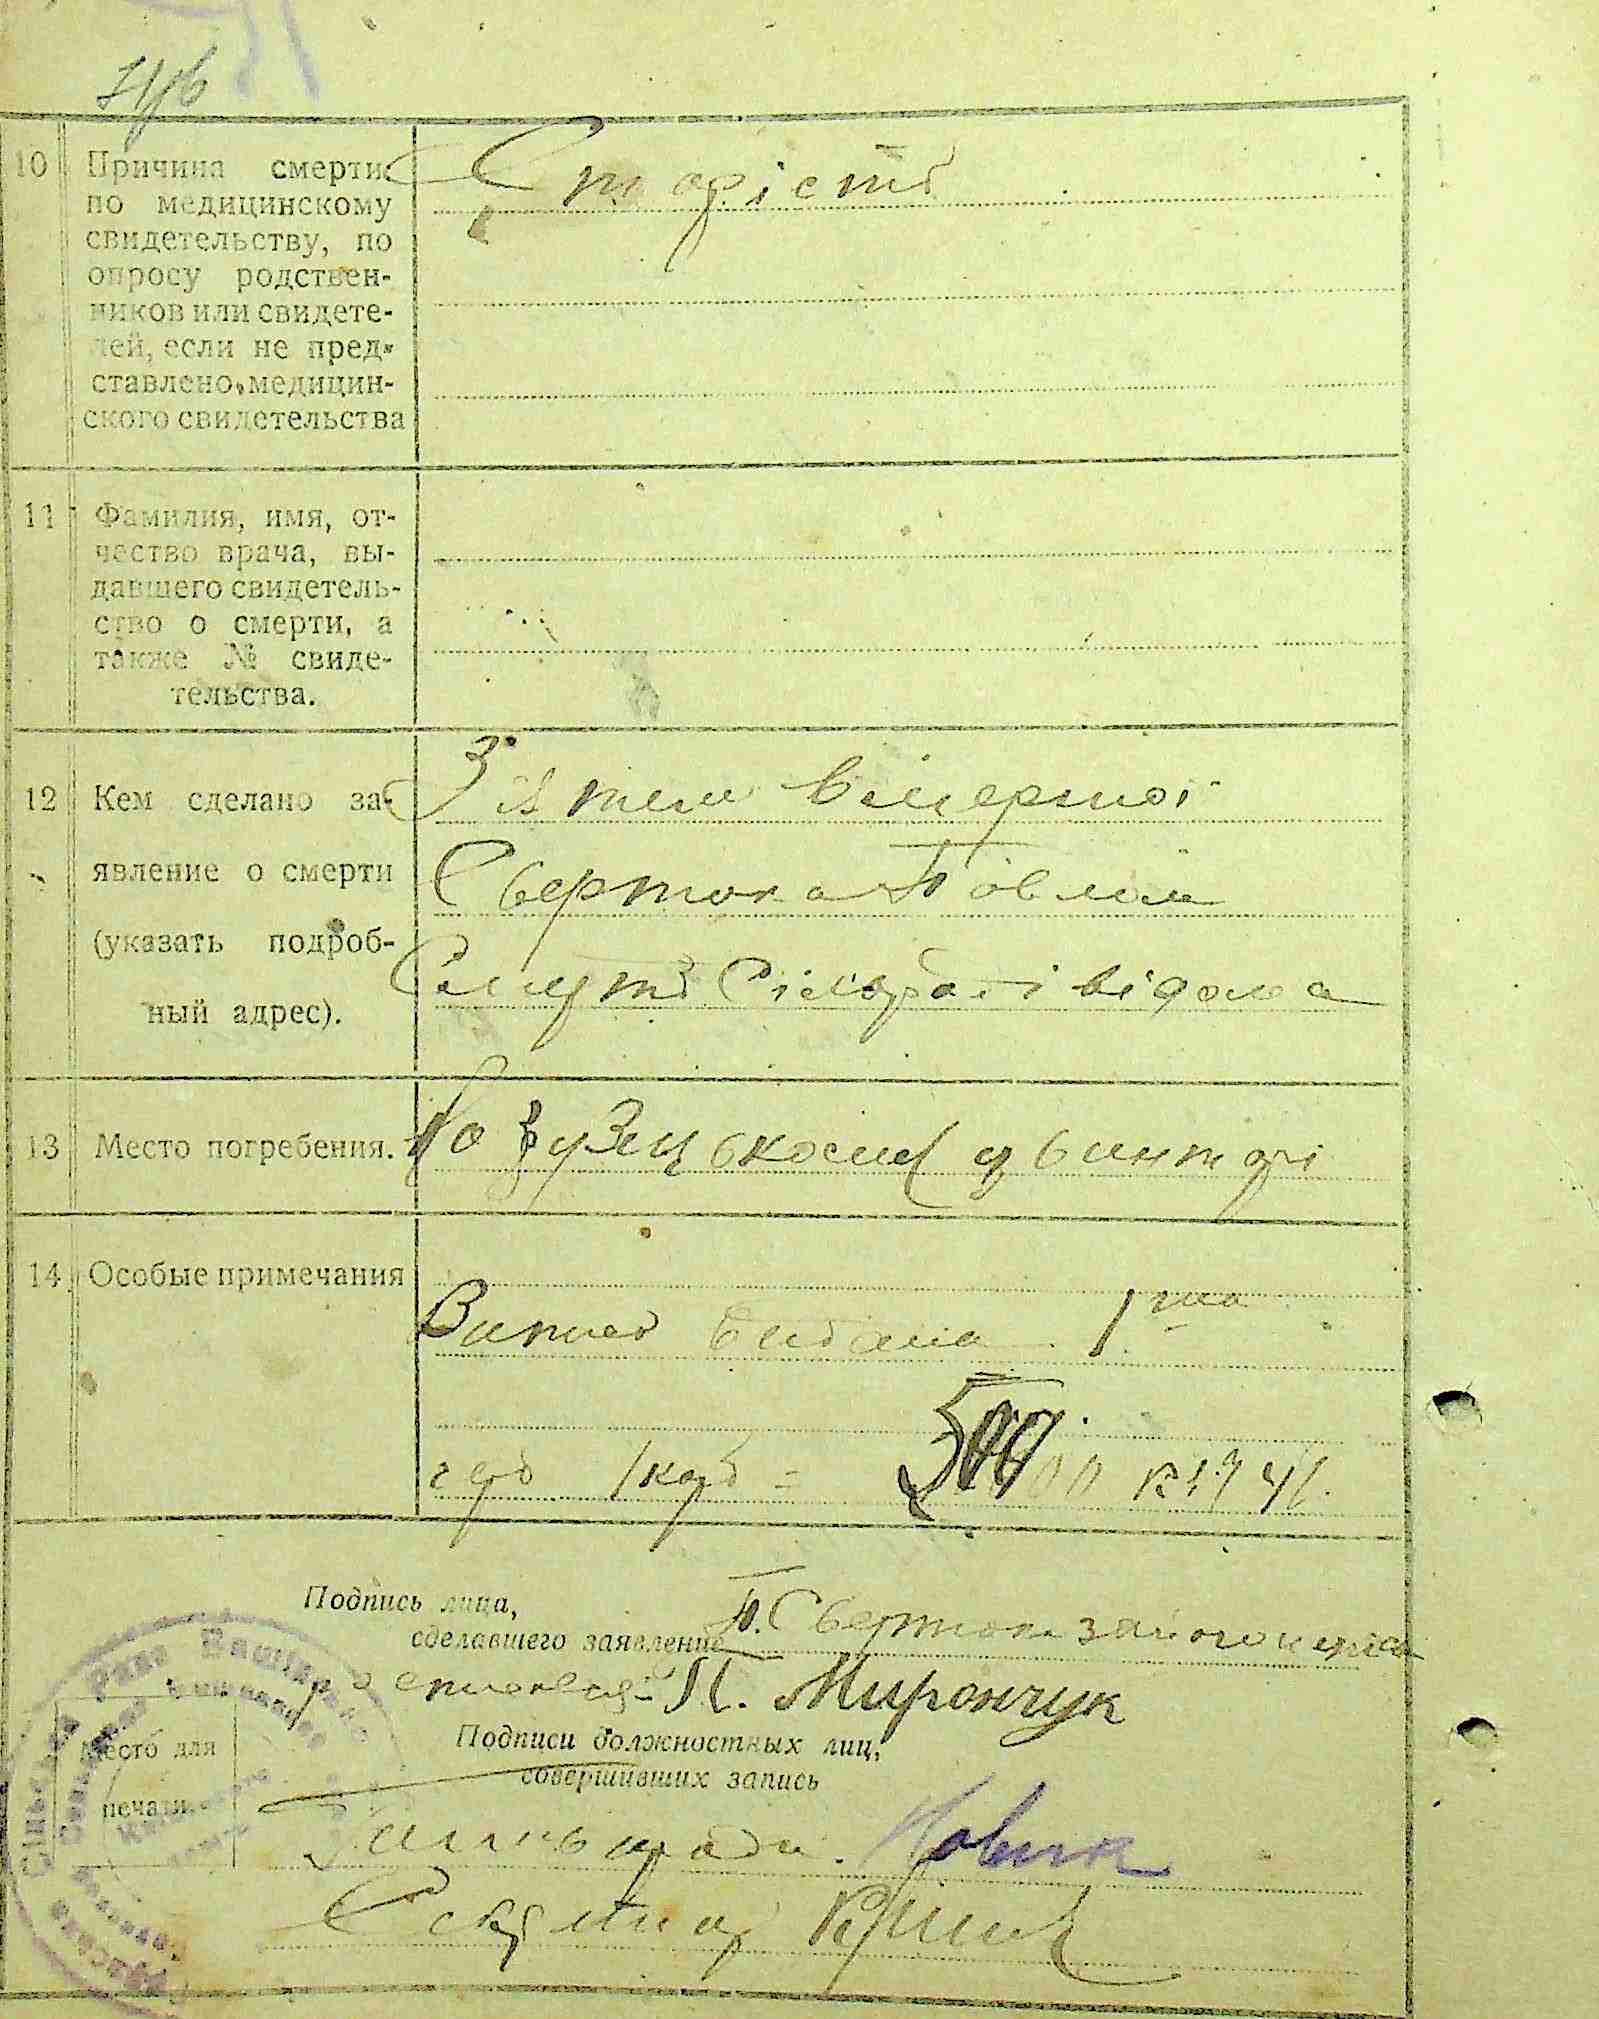 10 Причина смерти
по медицинскому
свидетельству, по
опросу родствен-
ников или свидете-
лей, если не пред-
ставлено медицин-
ского свидетельства
Старість
11 Фамилия, имя, от-
чество врача, вы-
давшего свидетель-
ство о смерти, а
также № свиде-
тельства.
12 Кем сделано за-
явление о смерти
(указать подроб-
ный адрес).
Зятем вмершої
Свертока Павлом
Смерть Сільраді відома
13 Место погребения.
На цвинтарі
14 Особые примечания
Випис видана 1
Подпись лица,
сделавшего заявление
П. Сверток за його
П. Мирончук
Подписи должностных лиц,
совершивших запись
Место для
печати
Новик
Секретар